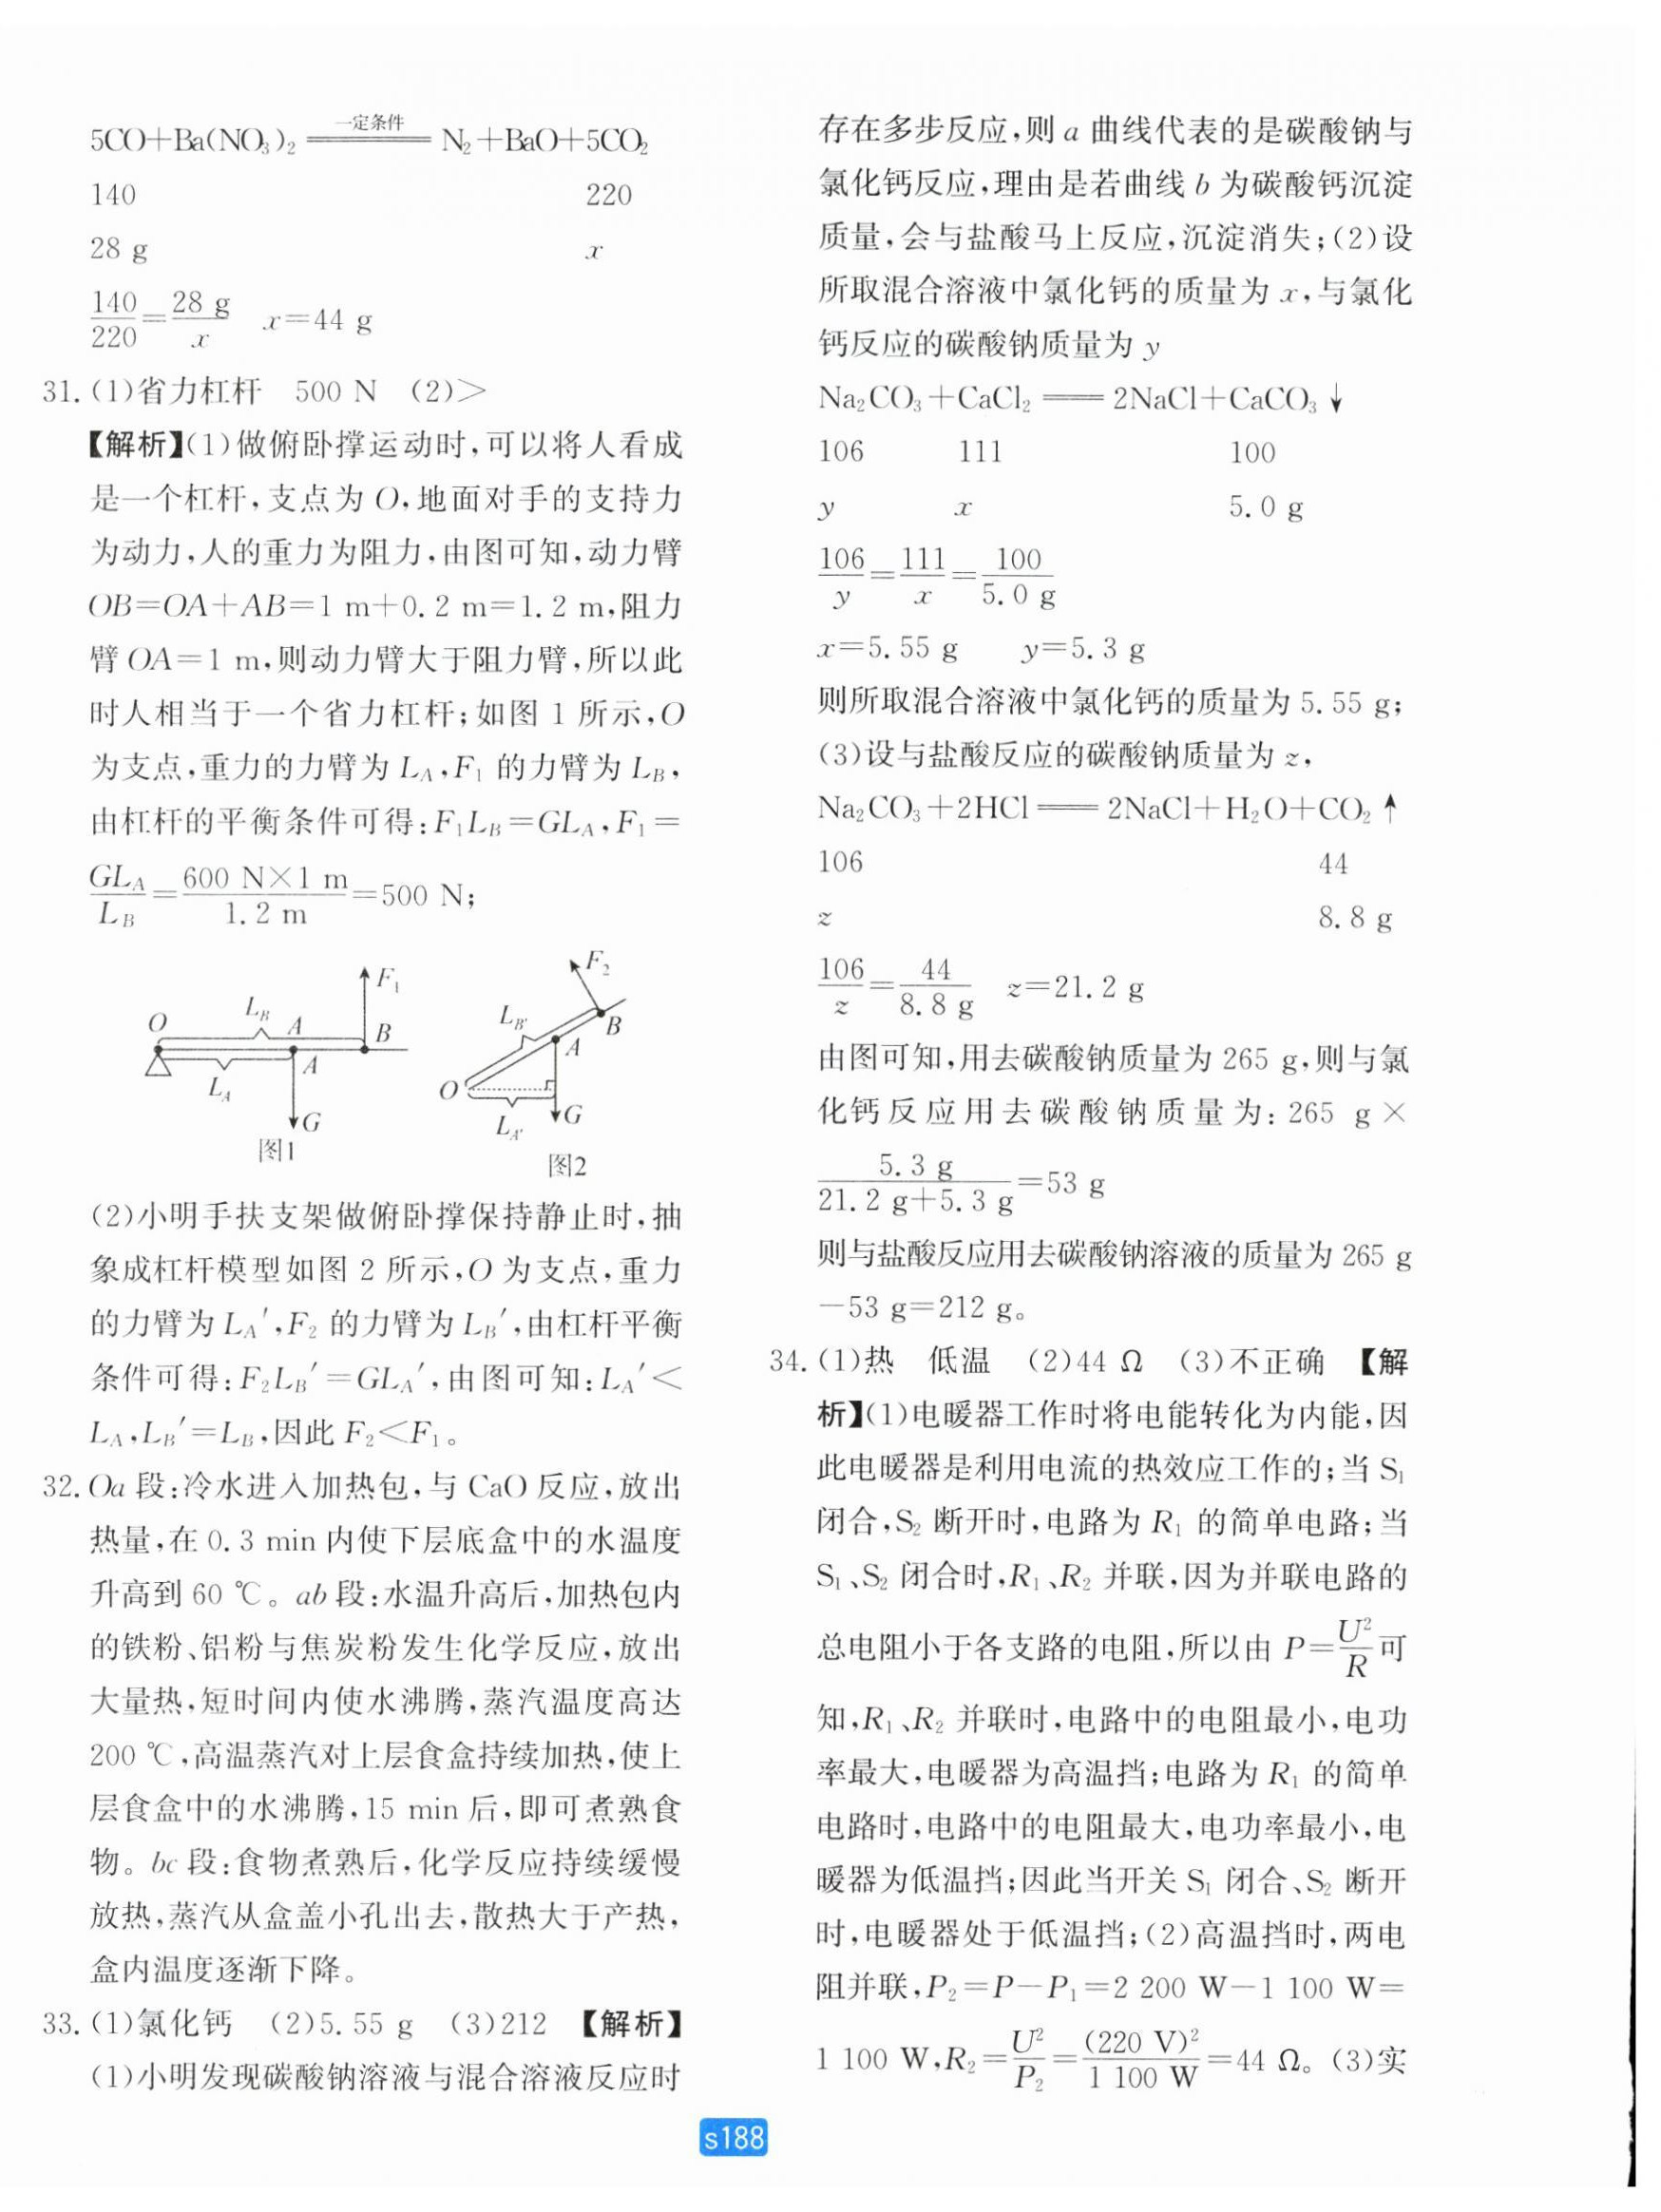 5CO+Ba(NO₃)₂ ══一定条件══ N₂+BaO+5CO₂
140 220
28 g x
140/220=28 g/x x=44 g
31.(1)省力杠杆 500 N (2)>
【解析】(1)做俯卧撑运动时,可以将人看成
是一个杠杆,支点为O,地面对手的支持力
为动力,人的重力为阻力,由图可知,动力臂
OB=OA+AB=1 m+0.2 m=1.2 m,阻力
臂OA=1 m,则动力臂大于阻力臂,所以此
时人相当于一个省力杠杆;如图1所示,O
为支点,重力的力臂为L_A,F₁的力臂为L_B,
由杠杆的平衡条件可得:F₁L_B=GL_A,F₁=
GL_A/L_B=600 N×1 m/1.2 m=500 N;
O L_B A F₁ B L_A A G
图1
F₂ L_B′ B A O L_A′ G
图2
(2)小明手扶支架做俯卧撑保持静止时,抽
象成杠杆模型如图2所示,O为支点,重力
的力臂为L_A′,F₂的力臂为L_B′,由杠杆平衡
条件可得:F₂L_B′=GL_A′,由图可知:L_A′<
L_A,L_B′=L_B,因此F₂<F₁。
32.Oa段:冷水进入加热包,与CaO反应,放出
热量,在0.3 min内使下层底盒中的水温度
升高到60 ℃。ab段:水温升高后,加热包内
的铁粉、铝粉与焦炭粉发生化学反应,放出
大量热,短时间内使水沸腾,蒸汽温度高达
200 ℃,高温蒸汽对上层食盒持续加热,使上
层食盒中的水沸腾,15 min后,即可煮熟食
物。bc段:食物煮熟后,化学反应持续缓慢
放热,蒸汽从盒盖小孔出去,散热大于产热,
盒内温度逐渐下降。
33.(1)氯化钙 (2)5.55 g (3)212 【解析】
(1)小明发现碳酸钠溶液与混合溶液反应时
存在多步反应,则a曲线代表的是碳酸钠与
氯化钙反应,理由是若曲线b为碳酸钙沉淀
质量,会与盐酸马上反应,沉淀消失;(2)设
所取混合溶液中氯化钙的质量为x,与氯化
钙反应的碳酸钠质量为y
Na₂CO₃+CaCl₂══2NaCl+CaCO₃↓
106 111 100
y x 5.0 g
106/y=111/x=100/5.0 g
x=5.55 g y=5.3 g
则所取混合溶液中氯化钙的质量为5.55 g;
(3)设与盐酸反应的碳酸钠质量为z,
Na₂CO₃+2HCl══2NaCl+H₂O+CO₂↑
106 44
z 8.8 g
106/z=44/8.8 g z=21.2 g
由图可知,用去碳酸钠质量为265 g,则与氯
化钙反应用去碳酸钠质量为:265 g×
5.3 g/(21.2 g+5.3 g)=53 g
则与盐酸反应用去碳酸钠溶液的质量为265 g
-53 g=212 g。
34.(1)热 低温 (2)44 Ω (3)不正确 【解
析】(1)电暖器工作时将电能转化为内能,因
此电暖器是利用电流的热效应工作的;当S₁
闭合,S₂断开时,电路为R₁的简单电路;当
S₁、S₂闭合时,R₁、R₂并联,因为并联电路的
总电阻小于各支路的电阻,所以由P=U²/R可
知,R₁、R₂并联时,电路中的电阻最小,电功
率最大,电暖器为高温挡;电路为R₁的简单
电路时,电路中的电阻最大,电功率最小,电
暖器为低温挡;因此当开关S₁闭合、S₂断开
时,电暖器处于低温挡;(2)高温挡时,两电
阻并联,P₂=P-P₁=2 200 W-1 100 W=
1 100 W,R₂=U²/P₂=(220 V)²/1 100 W=44 Ω。(3)实
s188